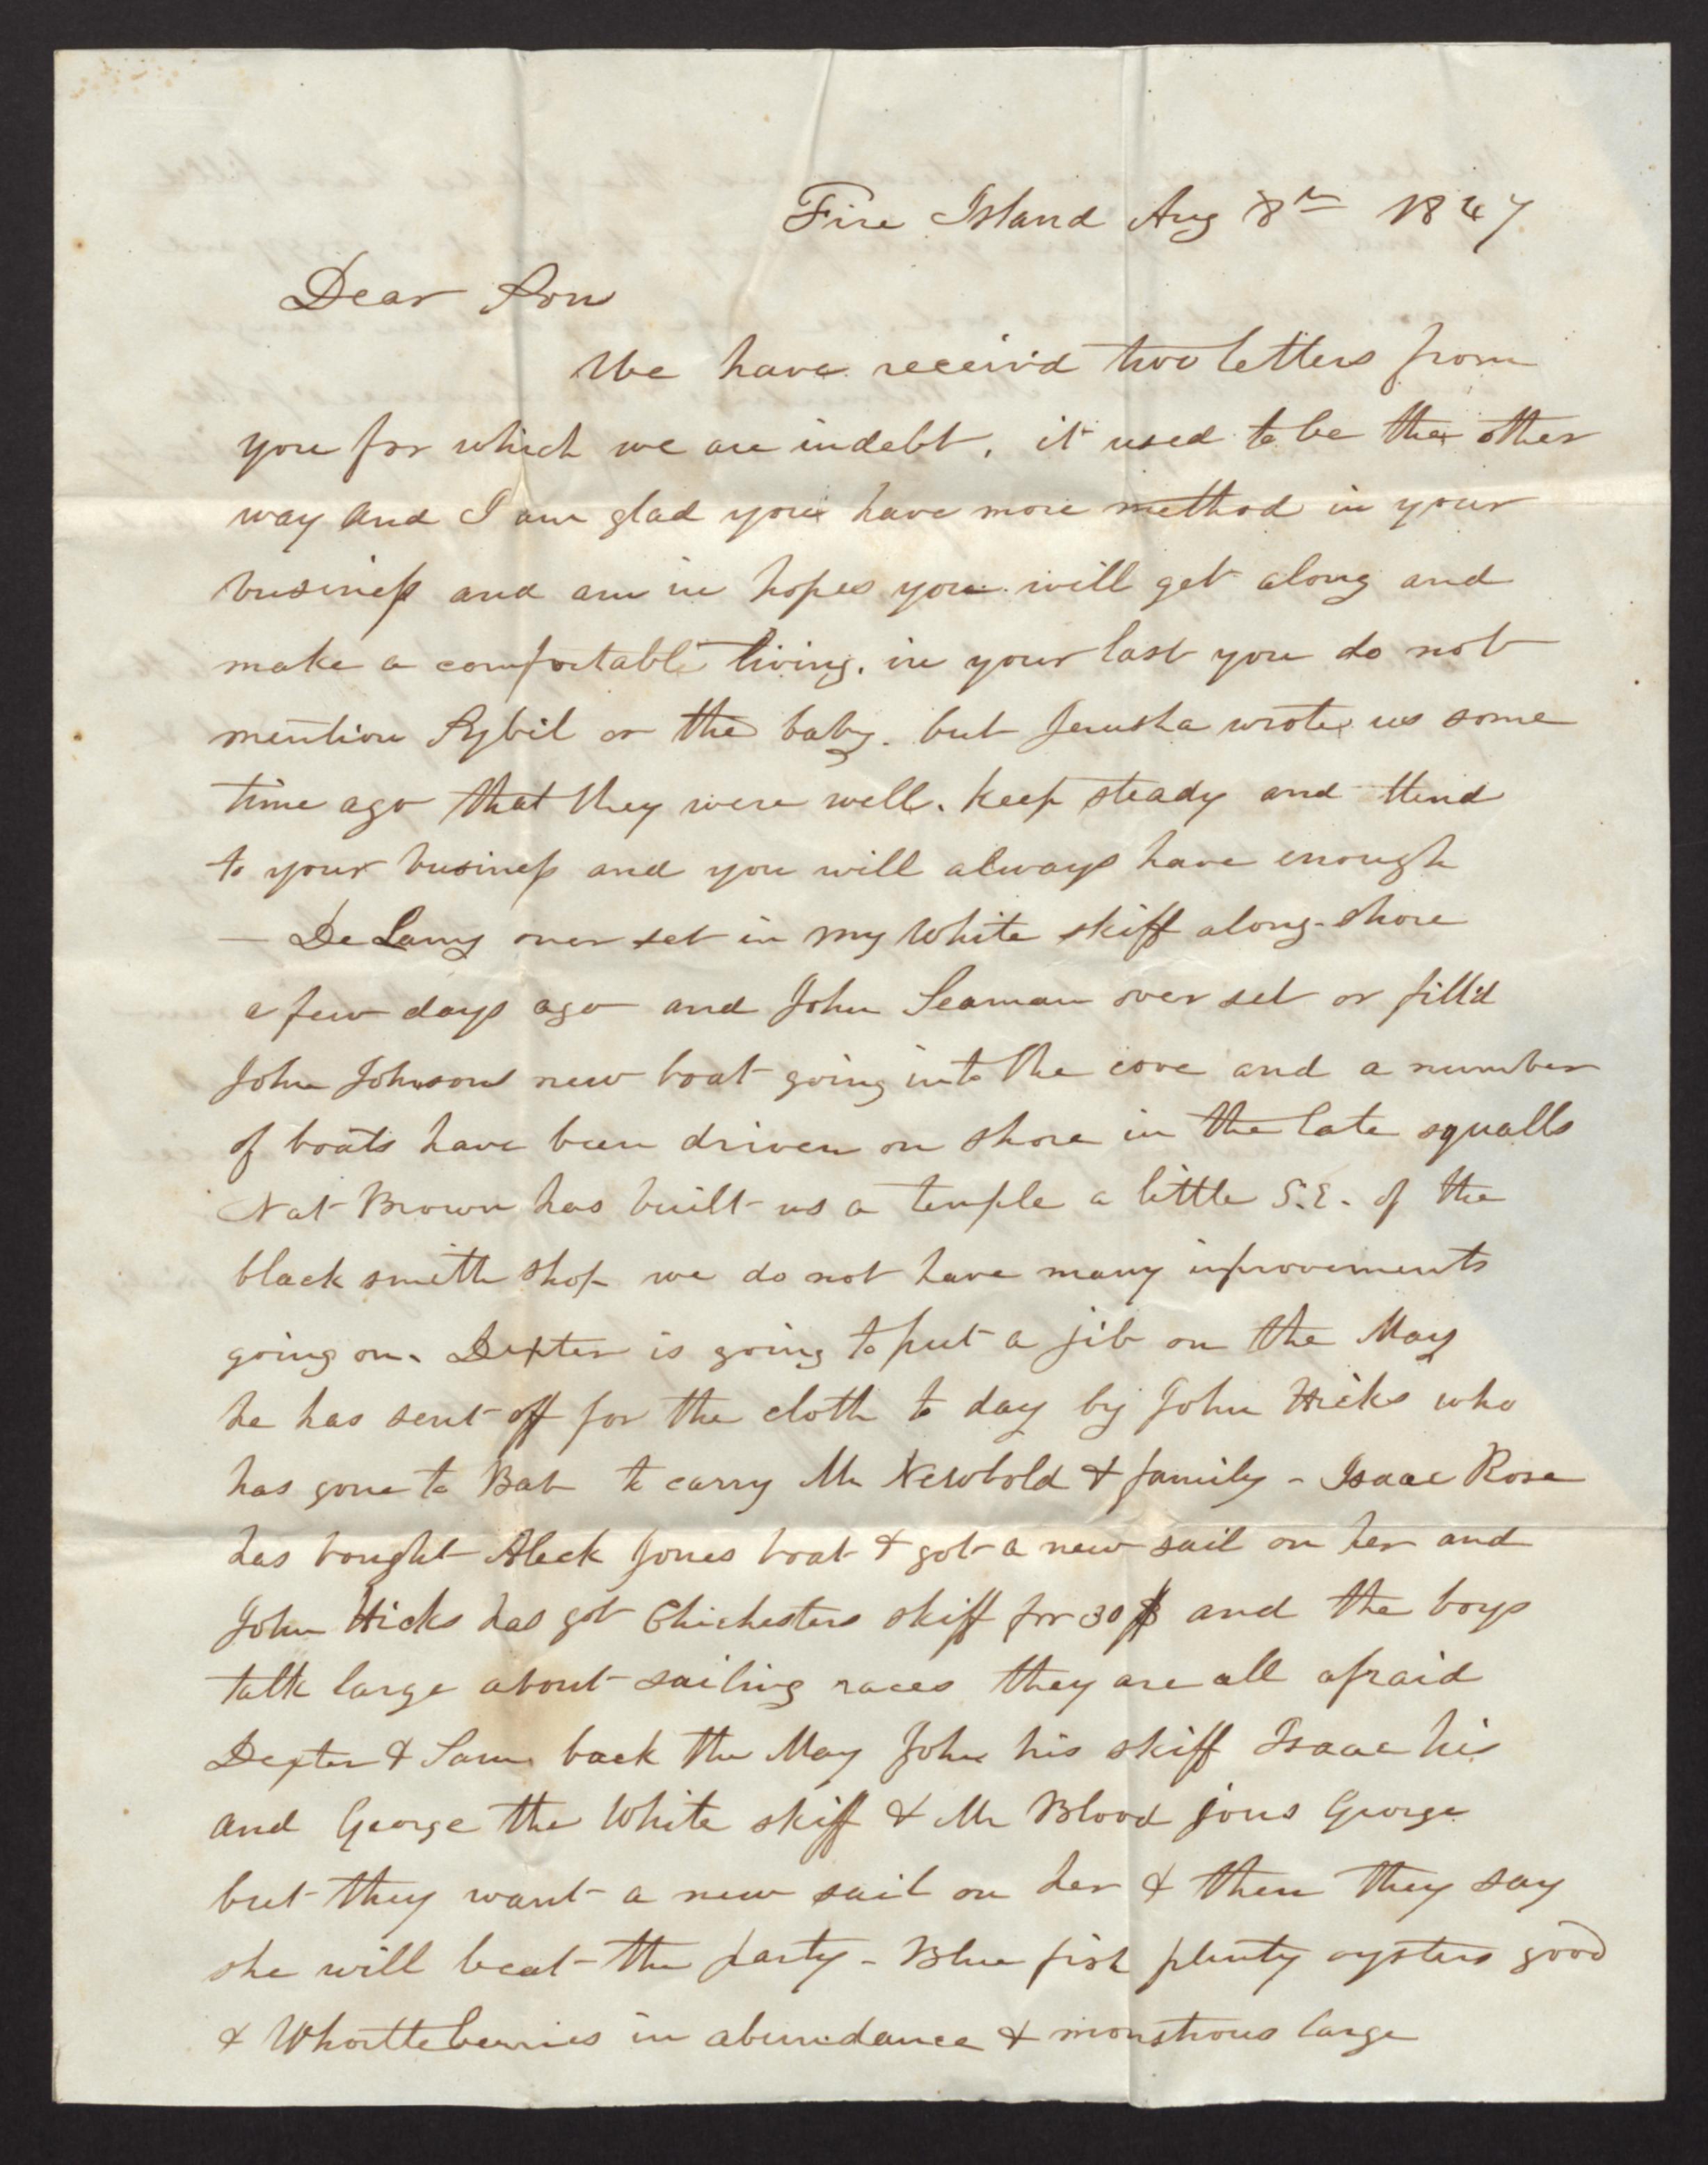 Fire Island Aug 8th 1847
Dear Son
We have receiv'd two letters from
you for which we are indebt, it used to be the other
way and I am glad you have more method in your
business and am in hopes you will get along and
make a comfortable living. in your last you do not
mention Sybil or the baby. but Jerusha wrote us some
time ago that they were well. keep steady and ttend
to your business and you will always have enough
— De Lany over set in my White skiff along-shore
a few days ago and John Seaman over set or fill'd
John Johnsons new boat going into the cove and a number
of boats have been driven on shore in the late squalls
Nat Brown has built us a temple a little S.E. of the
black smith shop we do not have many improvements
going on. Dexter is going to put a jib on the May
he has sent off for the cloth to day by John Hicks who
has gone to Bab to carry Mr Newbold & family - Isaac Rose
has bought Aleck Jones boat & got a new sail on her and
John Hicks has got Chichesters skiff for 30 $ and the boys
talk large about sailing races they are all afraid
Dexter & Sam back the May John his skiff Isaac his
and George the White skiff & Mr Blood joins George
but they want a new sail on her & then they say
she will beat the party - Blue fish plenty oysters good
& Whortleberries in abundance & monstrous large